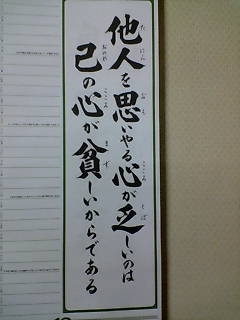 他人を思いやる心が乏しいのは
己の心が貧しいからである